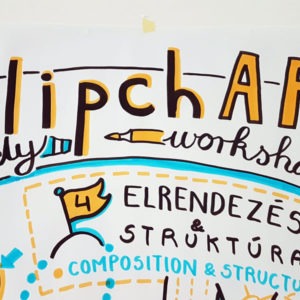 lipchAR
ly worksho
4 ELRENDEZÉS
&
STRUKTÚRA
COMPOSITION & STRUCTU